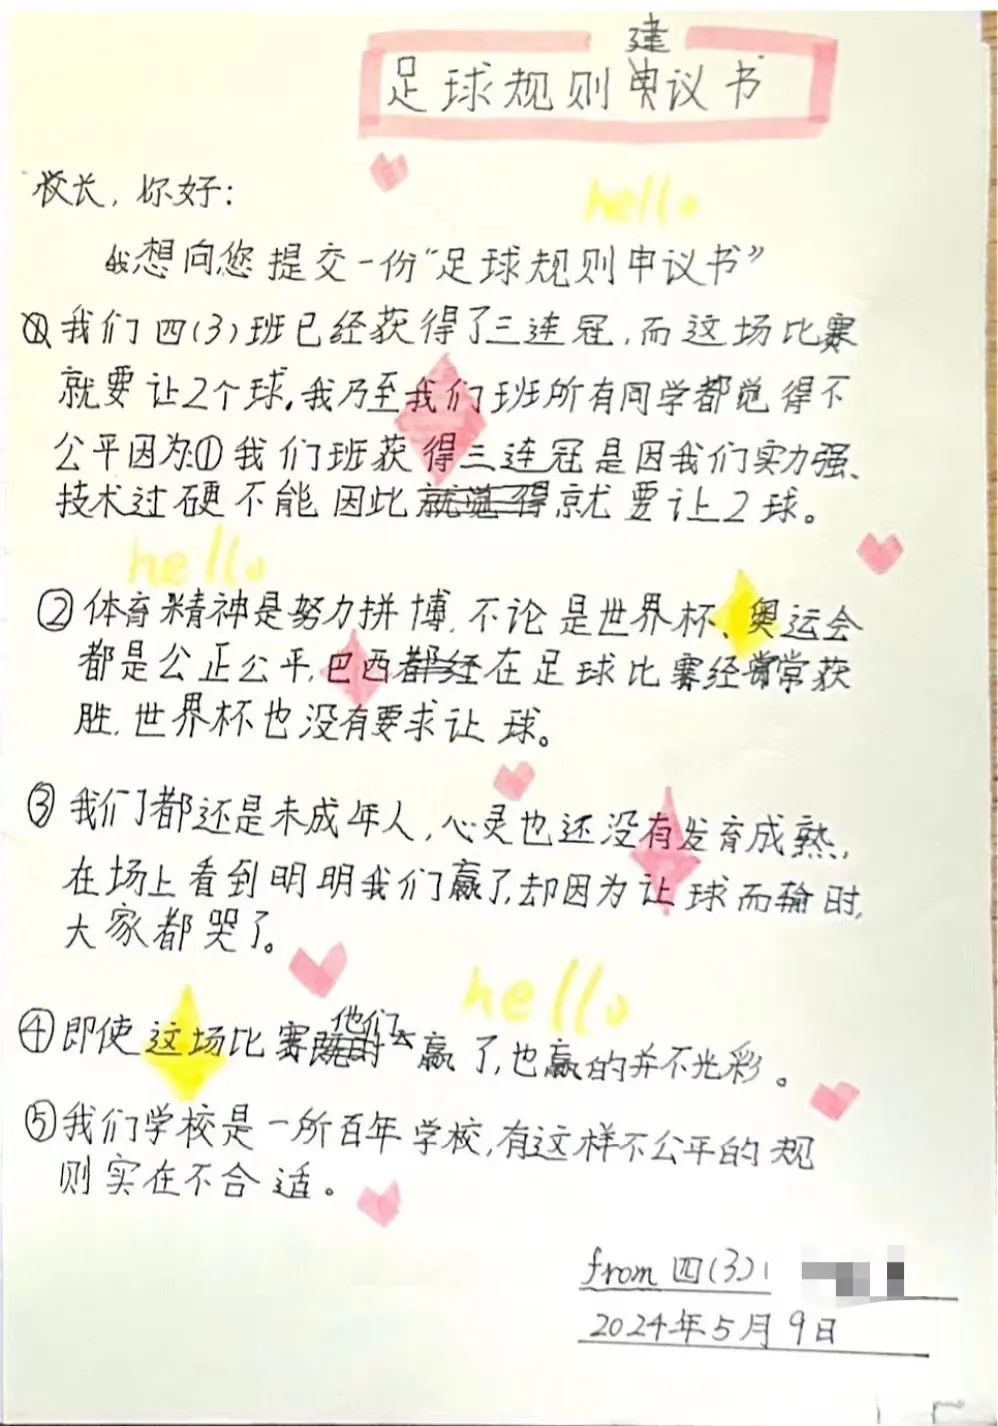 足球规则建议书
校长，你好：
hello
我想向您提交一份“足球规则申议书”
我们四(3)班已经获得了三连冠，而这场比赛
就要让2个球。我乃至我们班所有同学都觉得不
公平因为:①我们班获得三连冠是因我们实力强、
技术过硬不能因此就觉得就要让2球。
hello
②体育精神是努力拼博，不论是世界杯、奥运会
都是公正公平，巴西都经在足球比赛经常获
胜，世界杯也没有要求让球。
③我们都还是未成年人，心灵也还没有发育成熟，
在场上看到明明我们赢了，却因为让球而输时，
大家都哭了。
hello
④即使这场比赛他们赢了，也赢的并不光彩。
⑤我们学校是一所百年学校，有这样不公平的规
则实在不合适。
from 四(3)
2024年5月9日